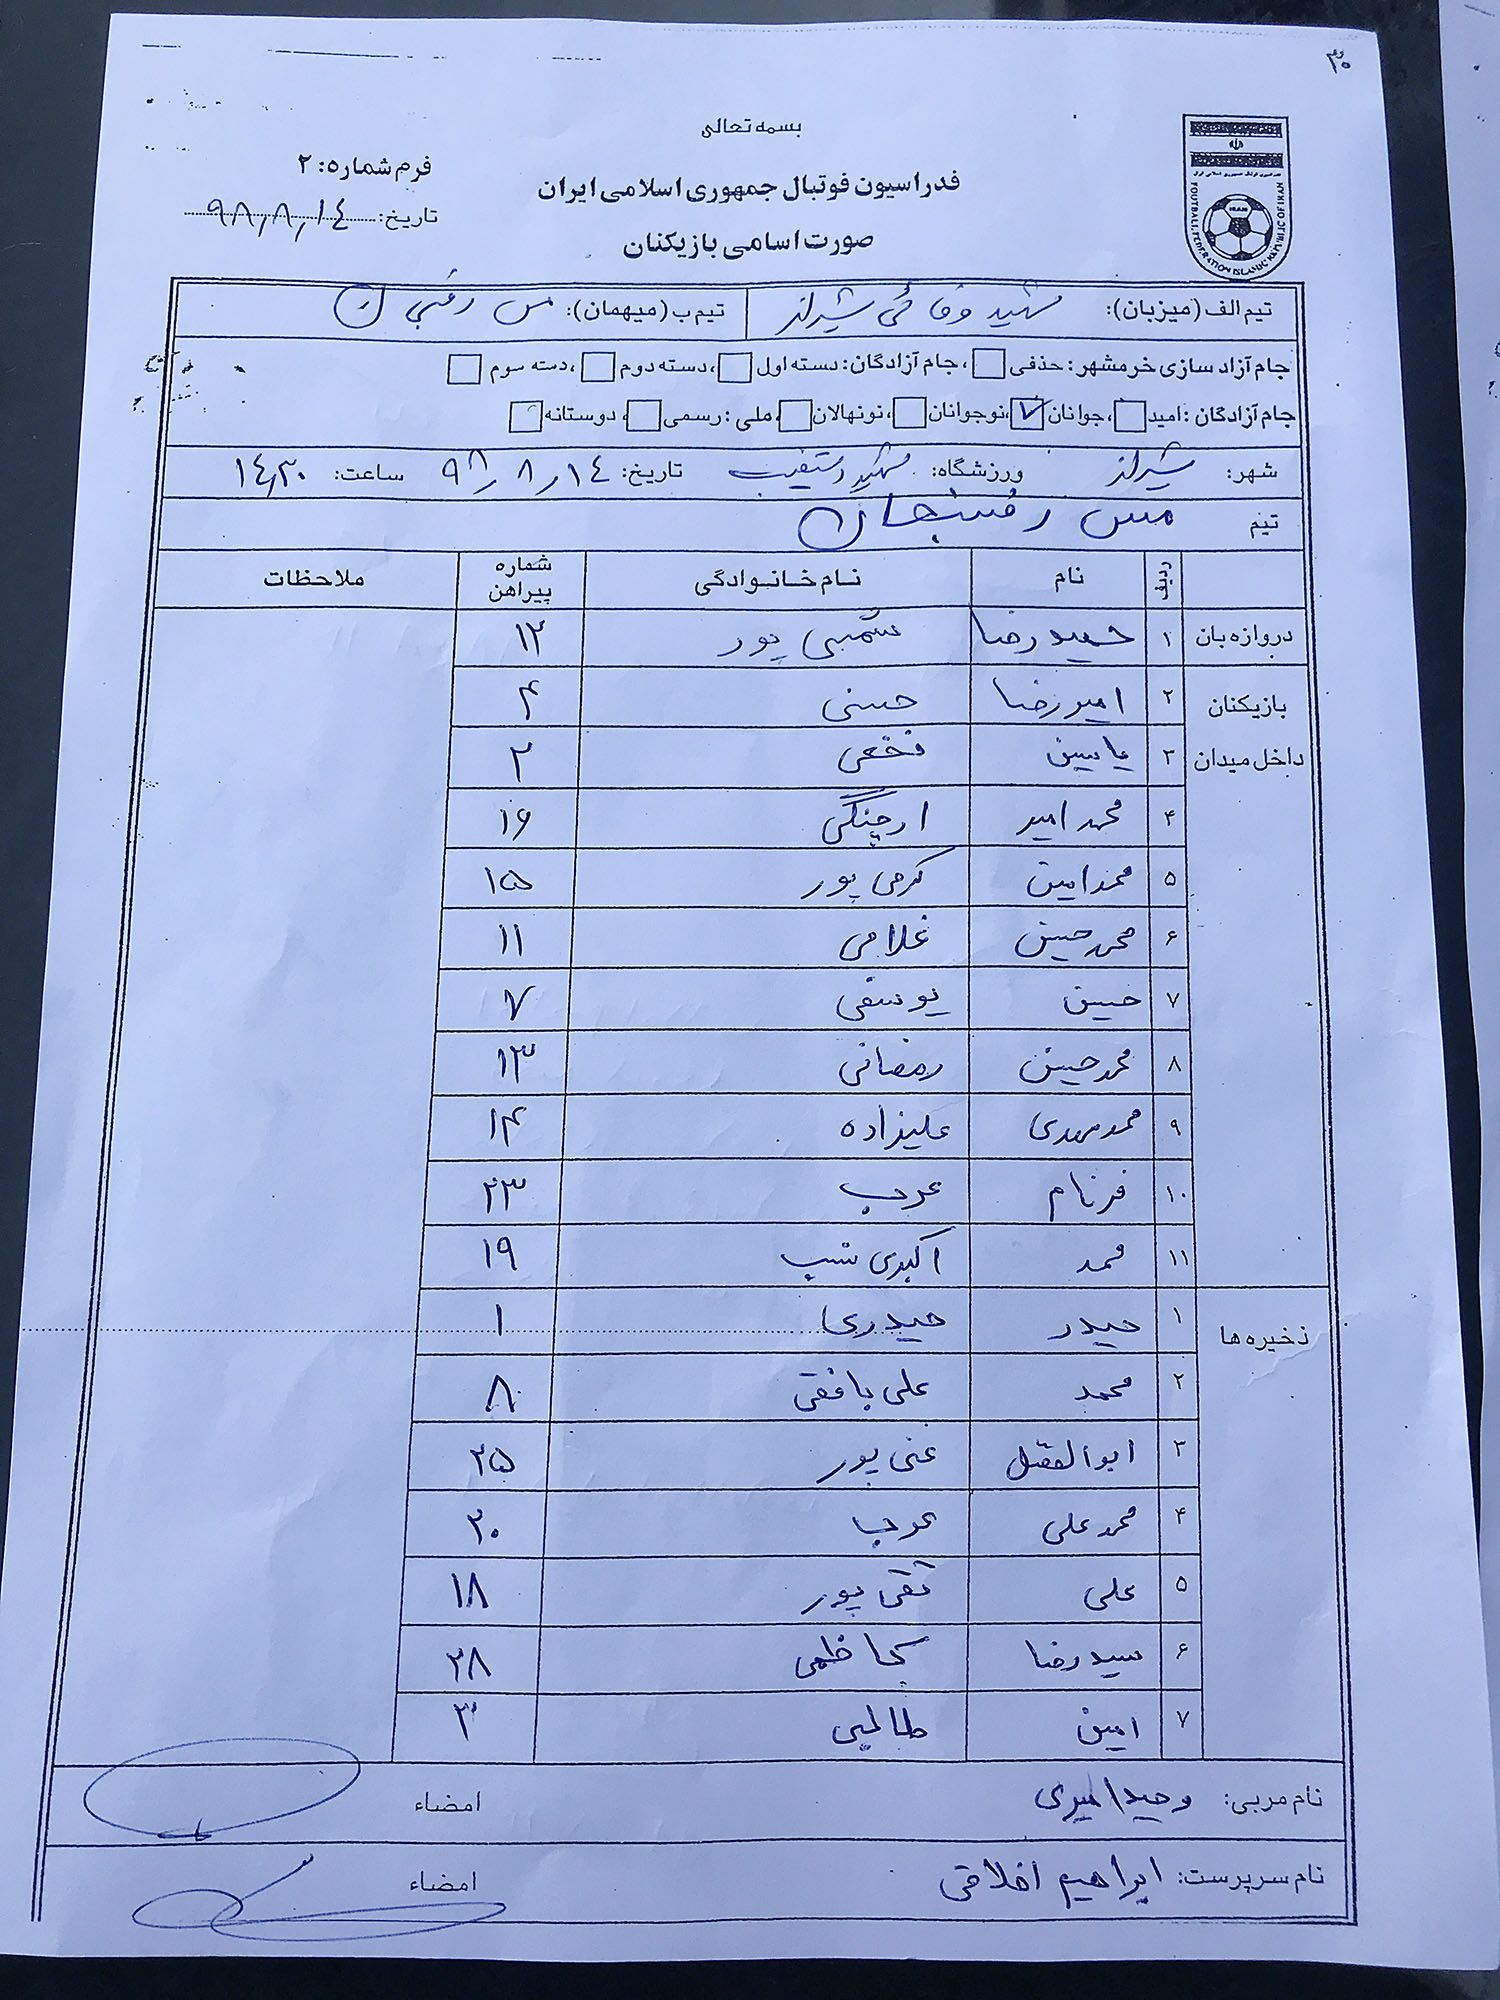 بسمه تعالی
فدراسیون فوتبال جمهوری اسلامی ایران
صورت اسامی بازیکنان
فرم شماره: ۲
تاریخ: ۹۸٫۸٫۱۴
IRAN
FOOTBALL FEDERATION ISLAMIC REPUBLIC OF IRAN
تیم الف (میزبان): شهید وفائی شیراز تیم ب (میهمان): مس رفسنجان
جام آزاد سازی خرمشهر: حذفی ، جام آزادگان: دسته اول ، دسته دوم ، دسته سوم
جام آزادگان: امید ، جوانان ✓ ، نوجوانان ، نونهالان ملی: رسمی ، دوستانه
شهر: شیراز ورزشگاه: شهید دستغیب تاریخ: ۹۸٫۸٫۱۴ ساعت: ۱۴٫۳۰
تیم مس رفسنجان
ردیف نام نام خانوادگی شماره پیراهن ملاحظات
دروازه بان ۱ حمیدرضا شمسی پور ۱۲
بازیکنان ۲ امیررضا حسنی ۴
داخل میدان ۳ یاسین نخعی ۲
۴ محمد امیر ارچنگی ۱۶
۵ محمد امین کرمی پور ۱۵
۶ محمد حسین غلامی ۱۱
۷ حسین یوسفی ۷
۸ محمد حسین رمضانی ۱۳
۹ محمد مهدی علیزاده ۱۴
۱۰ فرنام عرب ۲۳
۱۱ محمد اکبری نسب ۱۹
ذخیره ها ۱ حیدر حیدری ۱
۲ محمد علی بافقی ۸
۳ ابوالفضل غنی پور ۲۵
۴ محمد علی عرب ۲۰
۵ علی تقی پور ۱۸
۶ سید رضا کاظمی ۲۸
۷ امین طالبی ۳
نام مربی: وحید امیری امضاء
نام سرپرست: ابراهیم اخلاقی امضاء